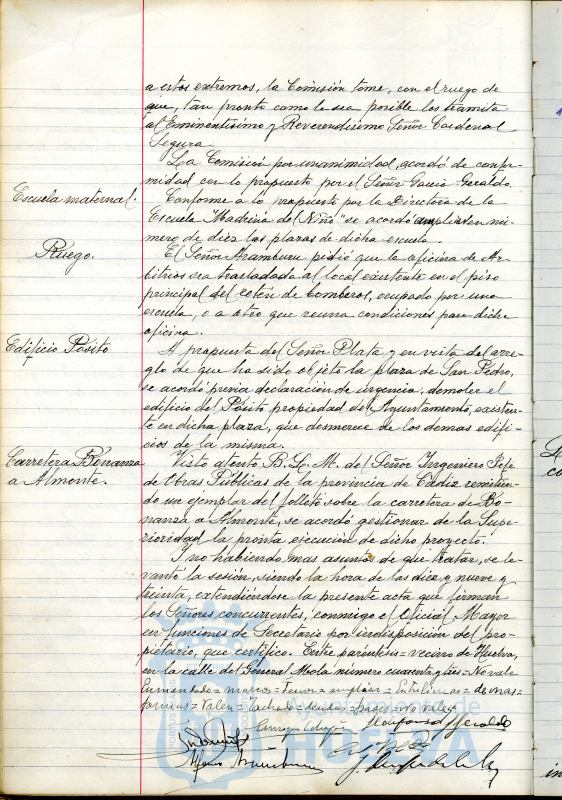 a estos extremos, la Comisión tome, con el ruego de
que, tan pronto como le sea posible los tramite
al Eminentísimo y Reverendísimo Señor Cardenal
Segura.
La Comisión por unanimidad, acordó de confor-
midad con lo propuesto por el Señor García-Geraldo.
Escuela maternal.
Conforme a lo propuesto por la Directora de la
Escuela "Madrina del Niño" se acordó ampliar en nú-
mero de diez las plazas de dicha escuela.
Ruego.
El Señor Aramburu pidió que la oficina de Ar-
bitrios sea trasladada al local existente en el piso
principal del retén de bomberos, ocupado por una
escuela, o a otro que reuna condiciones para dicha
oficina.
Edificio Pósito
A propuesta del Señor Plata y en vista del arre-
glo de que ha sido objeto la plaza de San Pedro,
se acordó previa declaración de urgencia, demoler el
edificio del Pósito propiedad del Ayuntamiento, existen-
te en dicha plaza, que desmerece de los demas edifi-
cios de la misma.
Carretera Bonanza
a Almonte.
Visto atento B. L. M. del Señor Ingeniero Jefe
de Obras Públicas de la provincia de Cádiz remitien-
do un ejemplar del folleto sobre la carretera de Bo-
nanza a Almonte, se acordó gestionar de la Supe-
rioridad la pronta ejecución de dicho proyecto.
Y no habiendo mas asuntos de que tratar, se le-
vantó la sesión, siendo la hora de las diez y nueve y
treinta, extendiéndose la presente acta que firman
los Señores concurrentes, conmigo el Oficial Mayor
en funciones de Secretario por indisposición del pro-
pietario, que certifico. Entre paréntesis = vecino de Huelva,
en la calle del General Mola número cuarenta y tres = No vale
Enmendado = marcos = ampliar = Entrelíneas = demas =
= Valen = Tachado = = No vale =
HUELVA